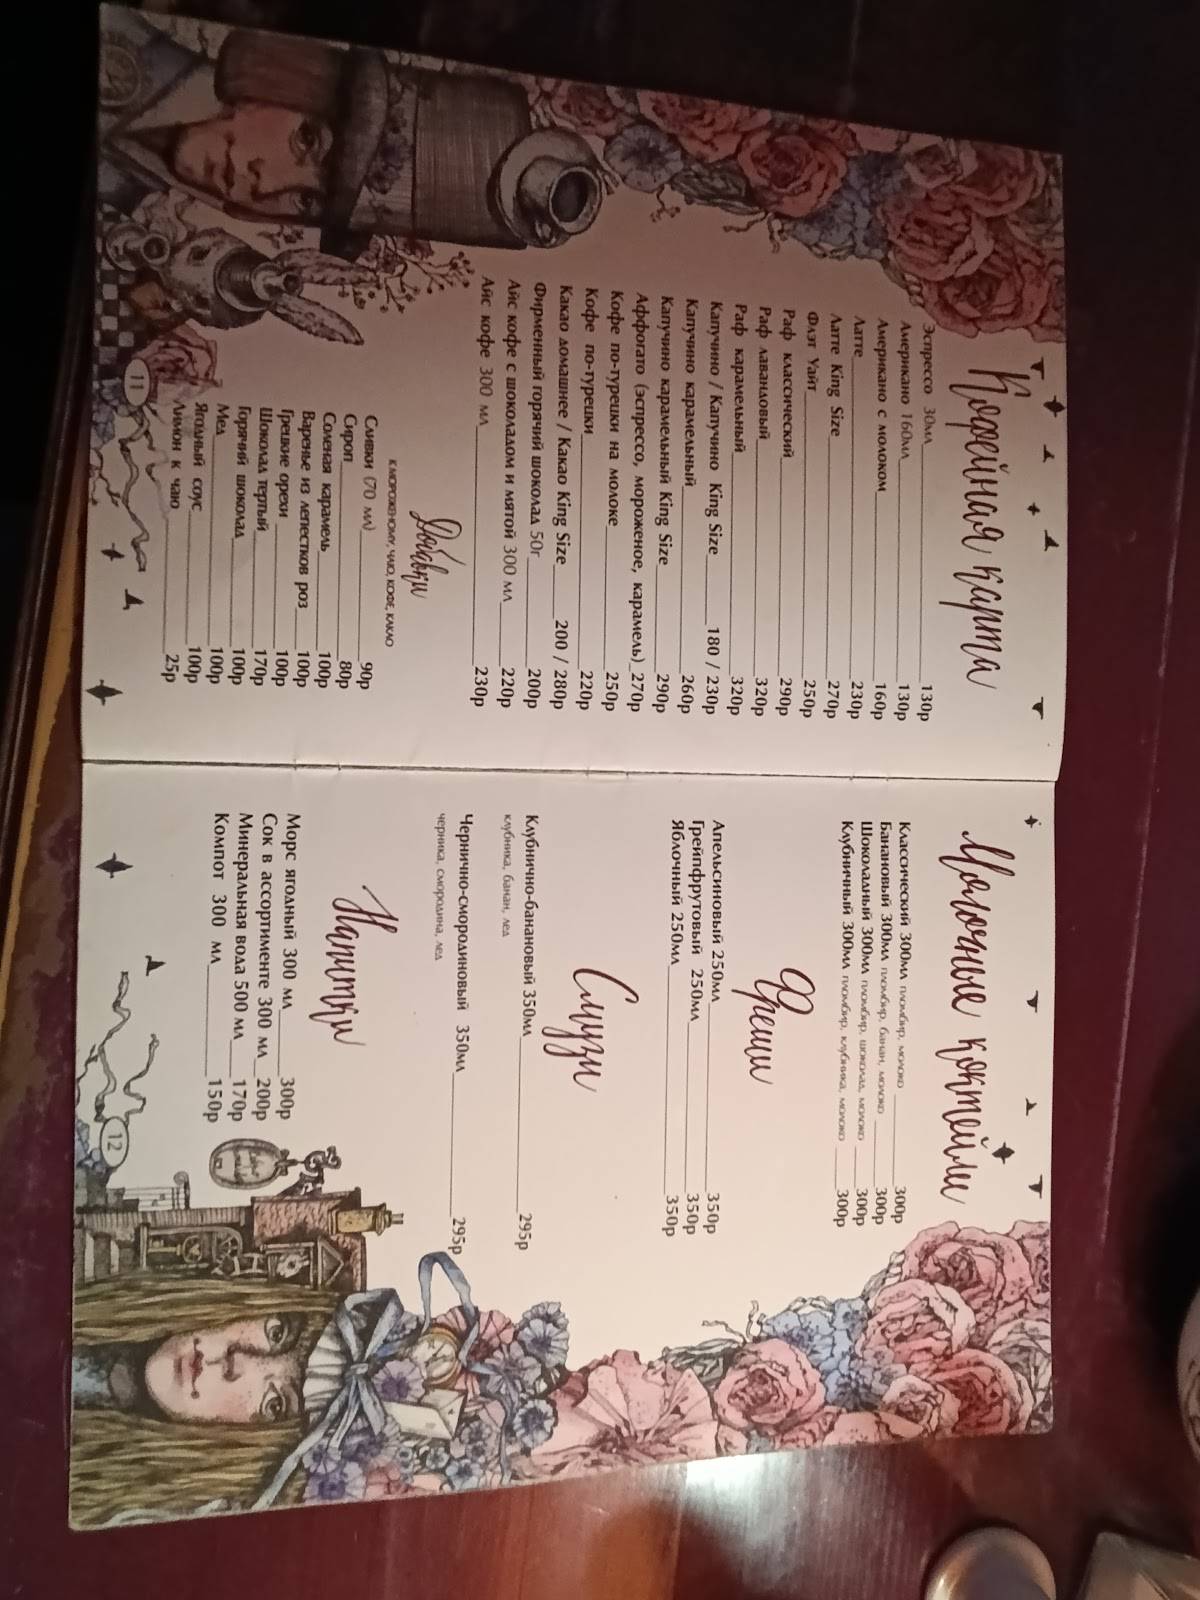 Кофейная карта
Эспрессо 30мл 130р
Американо 160мл 130р
Американо с молоком 160р
Латте 230р
Латте King Size 270р
Флэт Уайт 250р
Раф классический 290р
Раф лавандовый 320р
Раф карамельный 320р
Капучино / Капучино King Size 180 / 230р
Капучино карамельный 260р
Капучино карамельный King Size 290р
Аффогато (эспрессо, мороженое, карамель) 270р
Кофе по-турецки на молоке 250р
Кофе по-турецки 220р
Какао домашнее / Какао King Size 200 / 280р
Фирменный горячий шоколад 50г 200р
Айс кофе с шоколадом и мятой 300 мл 220р
Айс кофе 300 мл 230р
Добавки
К МОРОЖЕНОМУ, ЧАЮ, КОФЕ, КАКАО
Сливки (70 мл) 90р
Сироп 80р
Соленая карамель 100р
Варенье из лепестков роз 100р
Грецкие орехи 100р
Шоколад тертый 170р
Горячий шоколад 100р
Мед 100р
Ягодный соус 100р
Лимон к чаю 25р
11
Молочные коктейли
Классический 300мл пломбир, молоко 300р
Банановый 300мл пломбир, банан, молоко 300р
Шоколадный 300мл пломбир, шоколад, молоко 300р
Клубничный 300мл пломбир, клубника, молоко 300р
Фреши
Апельсиновый 250мл 350р
Грейпфрутовый 250мл 350р
Яблочный 250мл 350р
Смузи
Клубнично-банановый 350мл 295р
клубника, банан, лед
Чернично-смородиновый 350мл 295р
черника, смородина, лед
Напитки
Морс ягодный 300 мл 300р
Сок в ассортименте 300 мл 200р
Минеральная вода 500 мл 170р
Компот 300 мл 150р
12